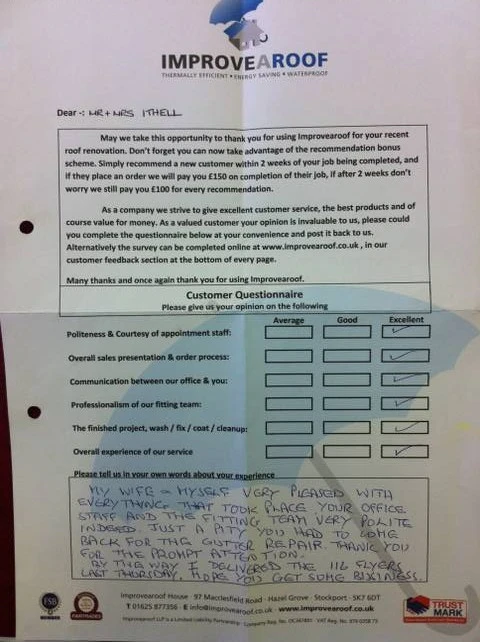 IMPROVEAROOF
THERMALLY EFFICIENT • ENERGY SAVING • WATERPROOF
Dear -: MR + MRS ITHELL
May we take this opportunity to thank you for using Improvearoof for your recent
roof renovation. Don't forget you can now take advantage of the recommendation bonus
scheme. Simply recommend a new customer within 2 weeks of your job being completed, and
if they place an order we will pay you £150 on completion of their job, if after 2 weeks don't
worry we still pay you £100 for every recommendation.
As a company we strive to give excellent customer service, the best products and of
course value for money. As a valued customer your opinion is invaluable to us, please could
you complete the questionnaire below at your convenience and post it back to us.
Alternatively the survey can be completed online at www.improvearoof.co.uk , in our
customer feedback section at the bottom of every page.
Many thanks and once again thank you for using Improvearoof.
Customer Questionnaire
Please give us your opinion on the following
Average Good Excellent
Politeness & Courtesy of appointment staff:
Overall sales presentation & order process:
Communication between our office & you:
Professionalism of our fitting team:
The finished project, wash / fix / coat / cleanup:
Overall experience of our service
Please tell us in your own words about your experience
MY WIFE & MYSELF VERY PLEASED WITH
EVERYTHING THAT TOOK PLACE YOUR OFFICE
STAFF AND THE FITTING TEAM VERY POLITE
INDEED. JUST A PITY YOU HAD TO COME
BACK FOR THE GUTTER REPAIR. THANK YOU
FOR THE PROMPT ATTENTION.
BY THE WAY I DELIVERED THE 116 FLYERS
LAST THURSDAY, HOPE YOU GET SOME BUSINESS.
FSB
FAIRTRADES
Improvearoof House · 97 Macclesfield Road · Hazel Grove · Stockport · SK7 6DT
T 01625 877356 · E info@improvearoof.co.uk · www.improvearoof.co.uk
Improvearoof LLP is a Limited Liability Partnership · Company Reg. No.
TRUST
MARK